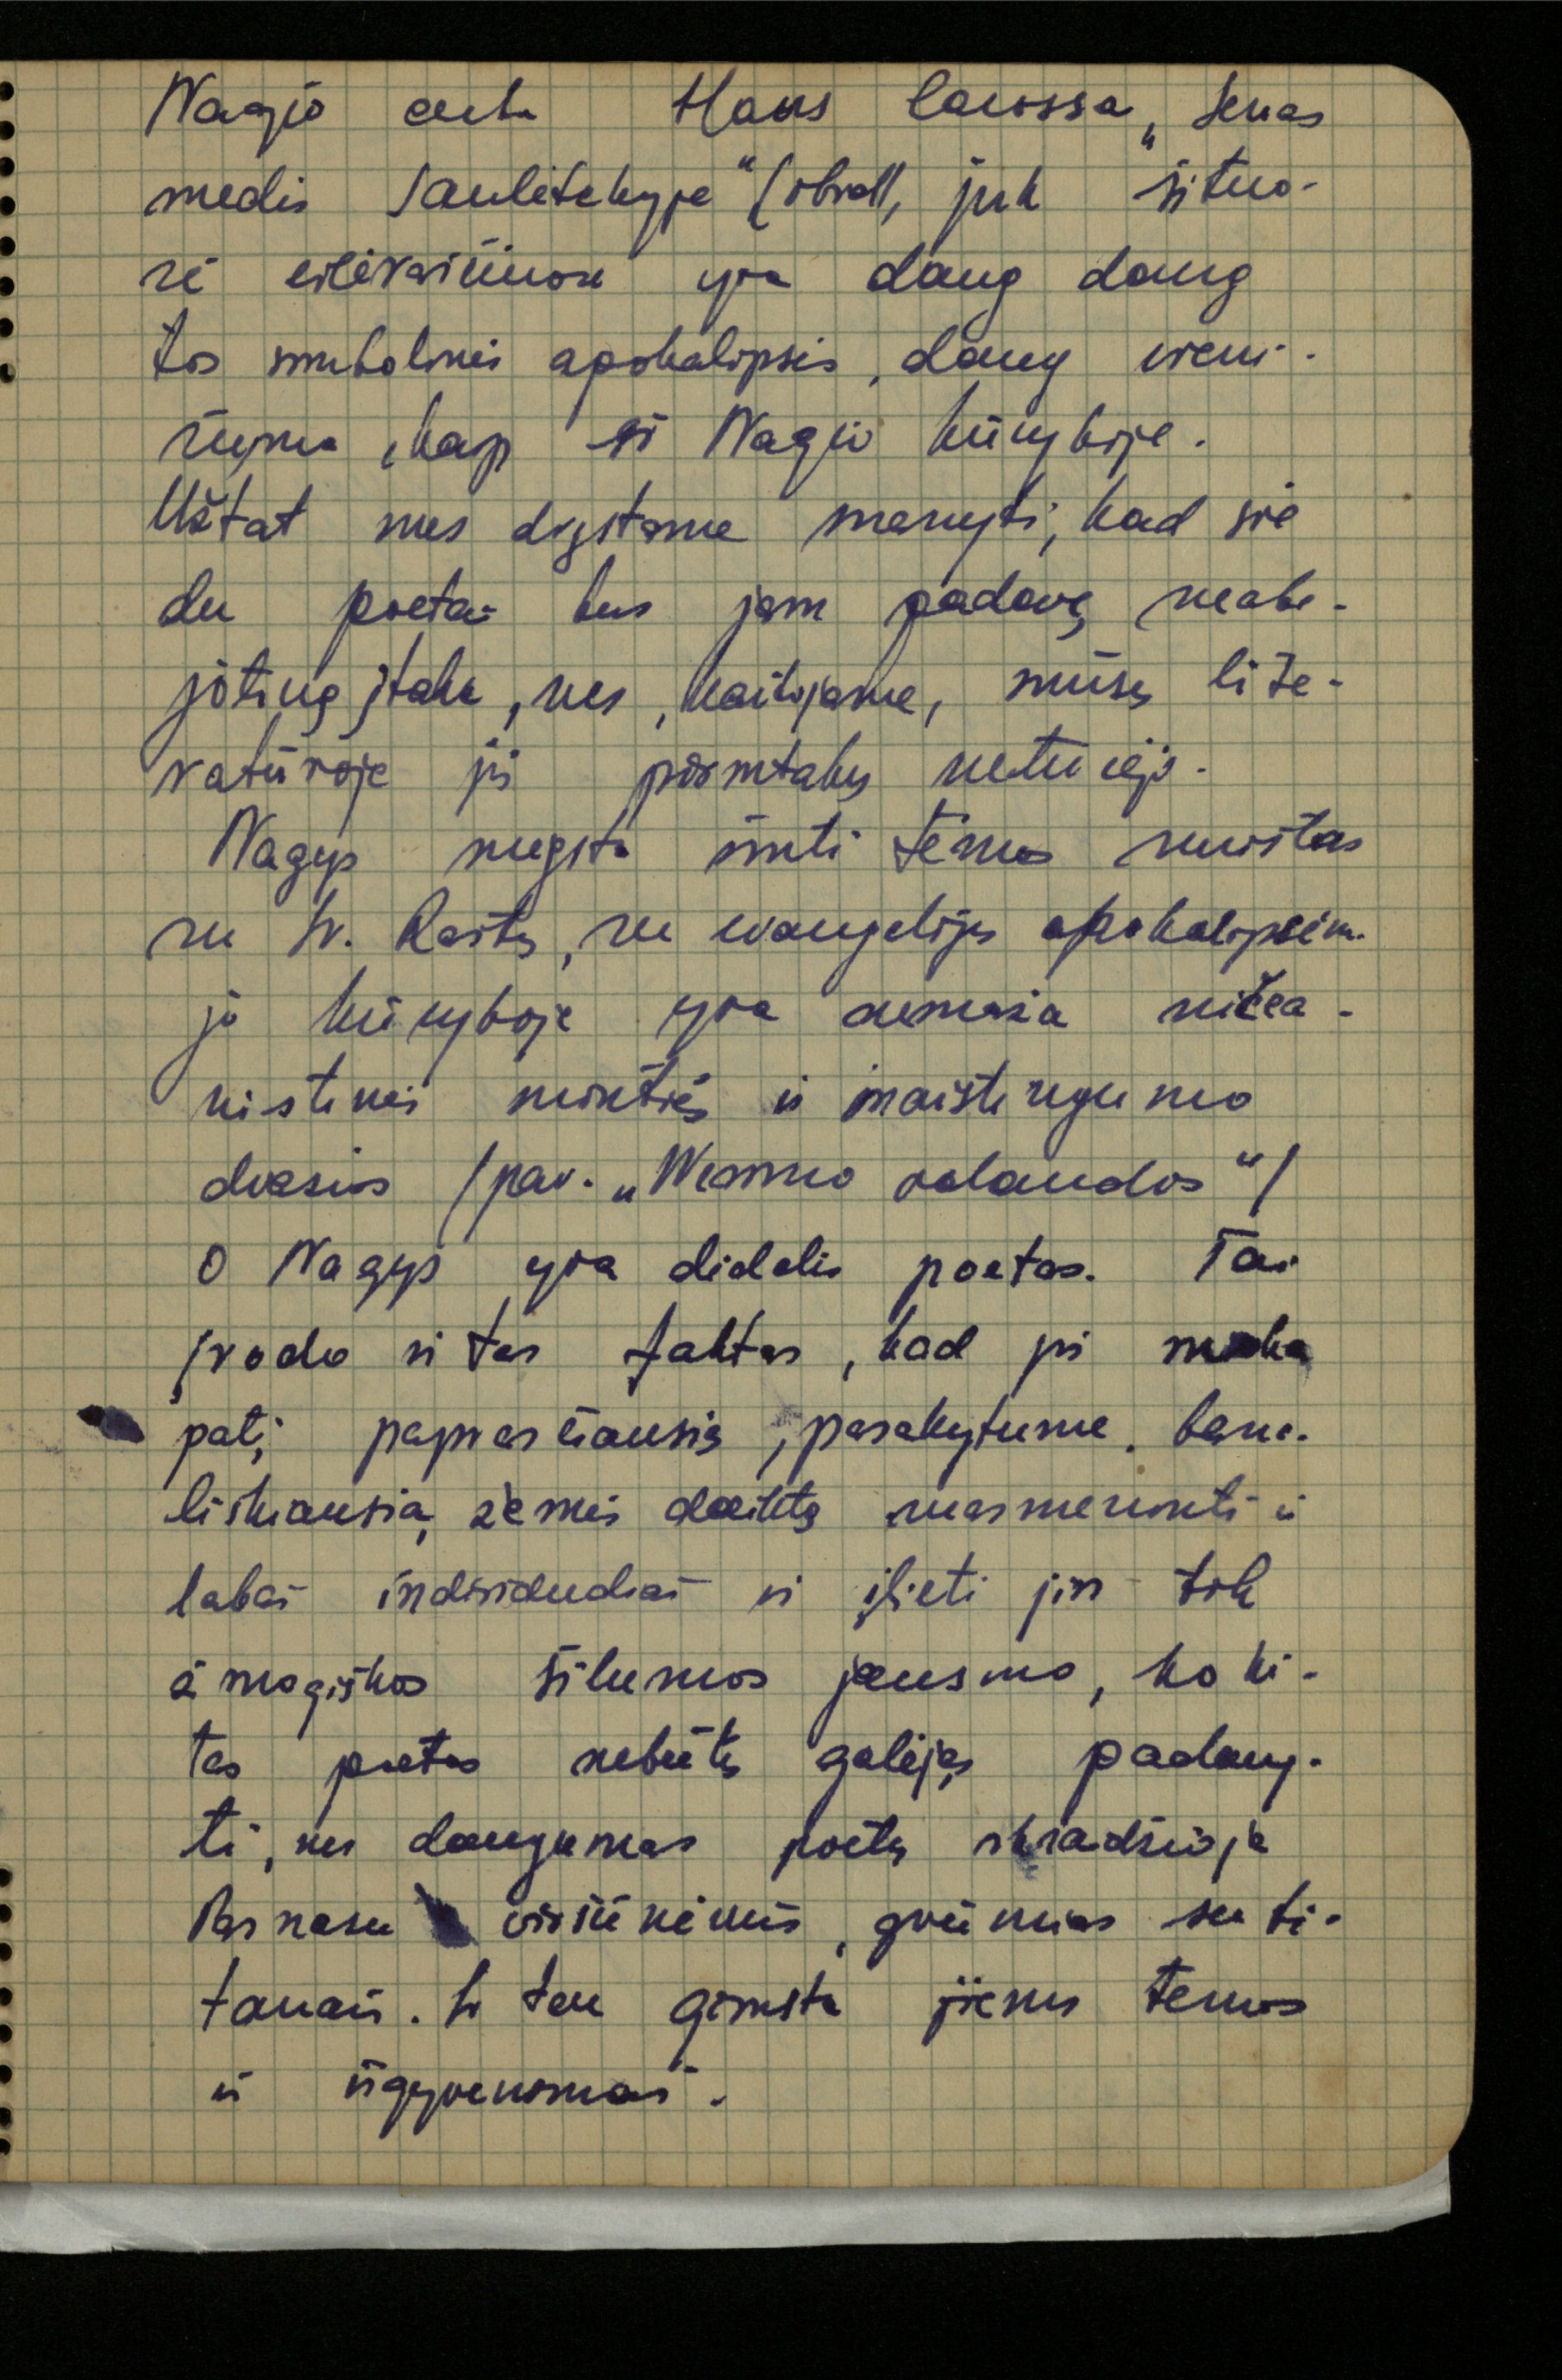 Nagio Hans Carossa „Senas
medis saulėtekyje“ (, juk šituo-
se eilėraščiuose yra daug daug
tos simbolinės apokalipsės, daug vieni-
šumo, kaip ir Nagio kūryboje.
Užtat mes drįstame manyti, kad šie
du poetai bus jam padarę neabe-
jotiną įtaką, nes, kartojame, mūsų lite-
ratūroje jis pirmtakų neturėjo.
Nagys mėgsta imti temas surištas
su šv. Raštu, su evangelijos apokalipsėm.
jo kūryboje yra nemaža ničea-
nistinės minties ir maištingumo
dvasios (pav. „Nemuno valandos“)
O Nagys yra didelis poetas. Tai
įrodo ir tas faktas, kad jis moka
patį paprasčiausią, pasakytume, bana-
liškiausią žemės daiktą suasmeninti ir
labai individualiai ir įlieti jin tiek
žmogiškos šilumos jausmo, ko ki-
tas poetas nebūtų galėjęs padary-
ti, nes daugumas poetų skraidžioja
Parnaso viršūnėmis, grumias su ti-
tanais. Iš ten gimsta jiems temos
ir išgyvenimai.